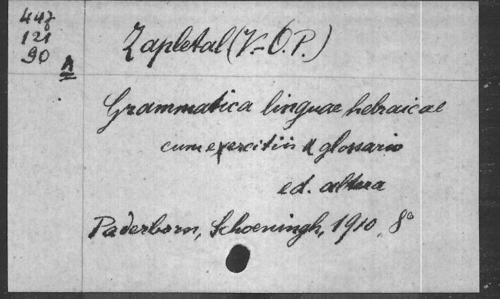 447
121
90
A
Zapletal (V-O.P.)
Grammatica linguae hebraicae
cum exercitiis & glossario
ed. altera
Paderborn, Schoeningh, 1910, 8°